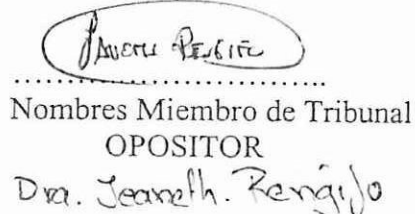 Nombres Miembro de Tribunal
OPOSITOR
Dra. Jeaneth. Rengijo